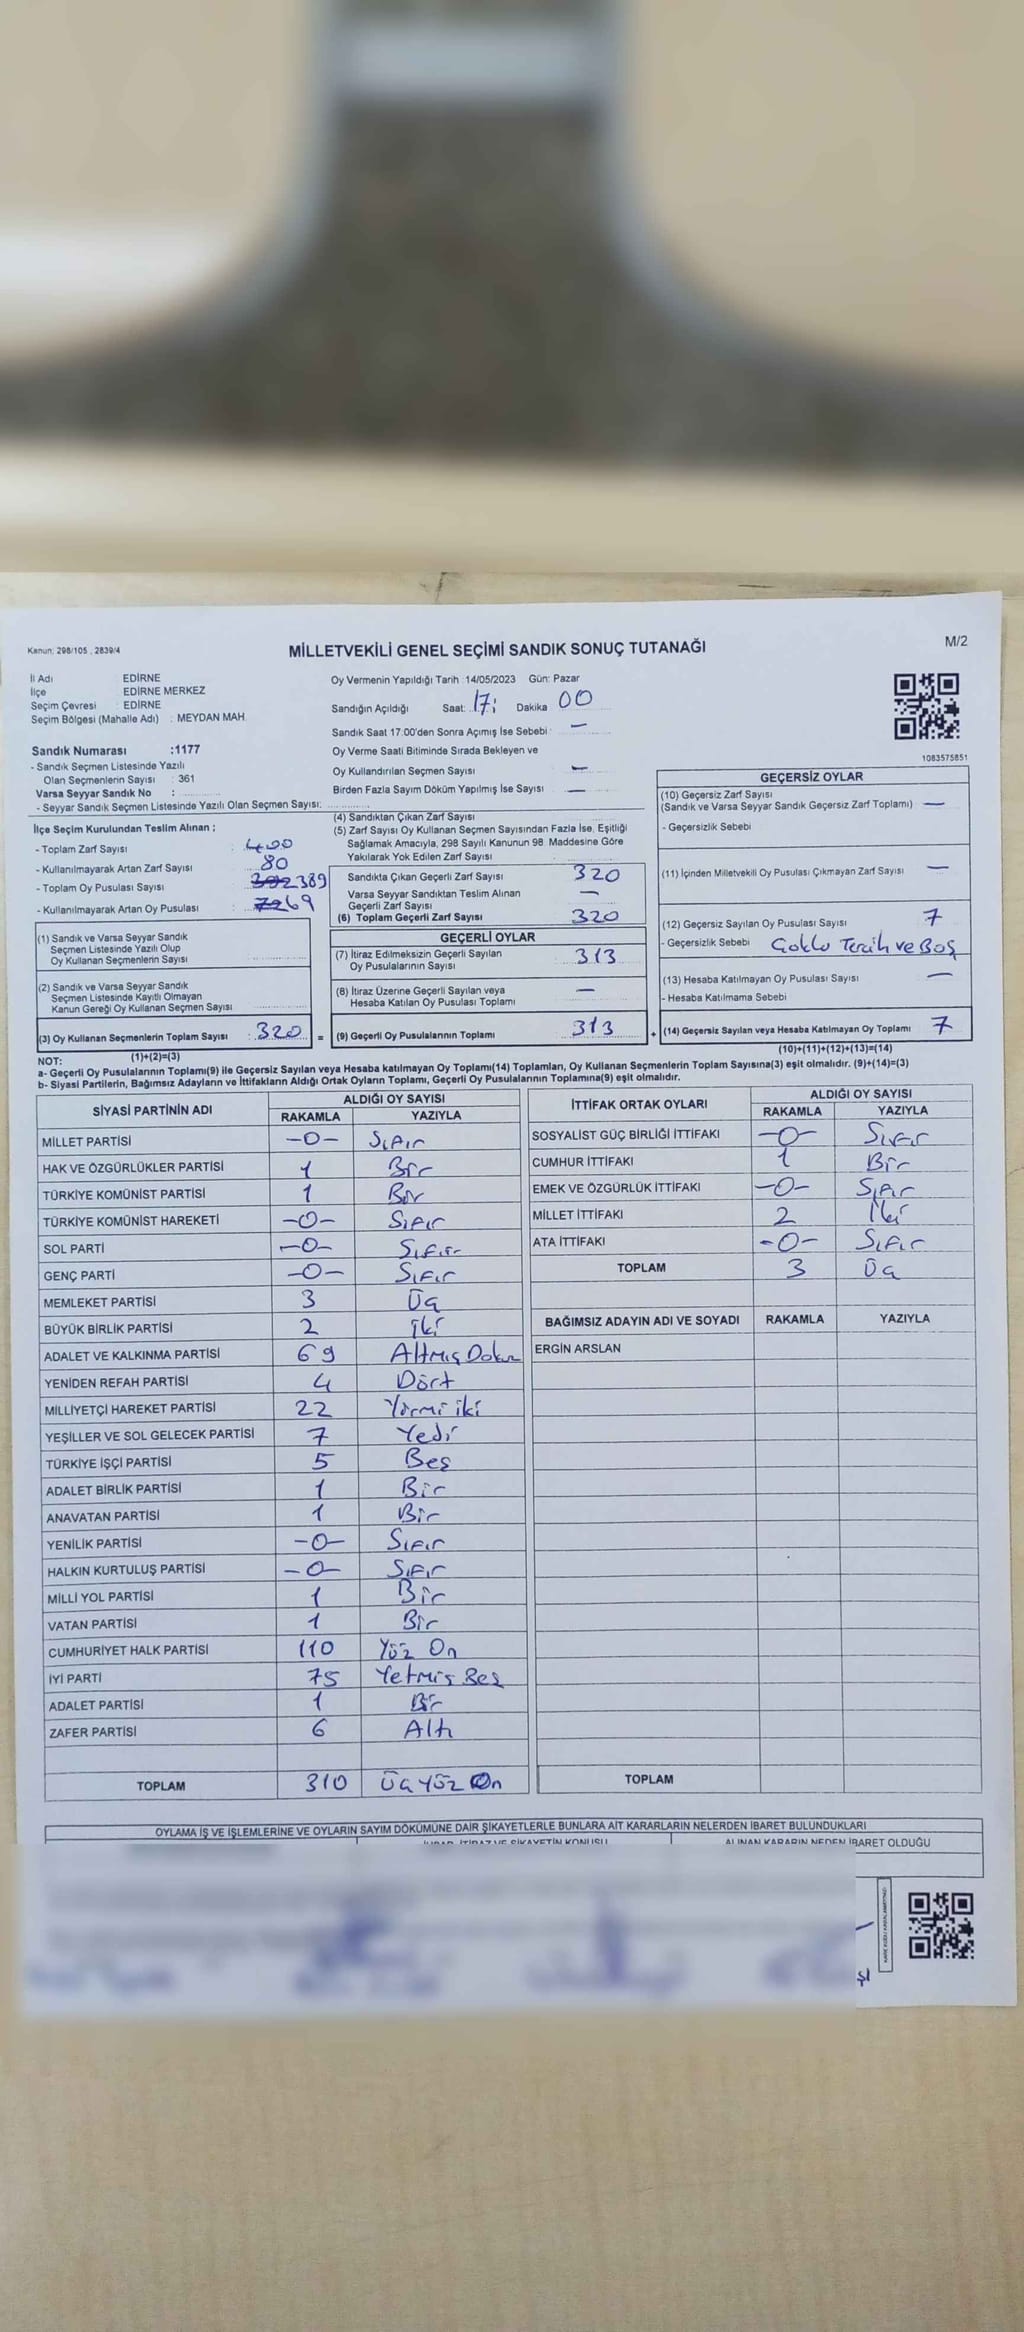 Kanun: 298/105 , 2839/4
MİLLETVEKİLİ GENEL SEÇİMİ SANDIK SONUÇ TUTANAĞI
M/2
İl Adı EDİRNE
İlçe EDİRNE MERKEZ
Seçim Çevresi : EDİRNE
Seçim Bölgesi (Mahalle Adı) : MEYDAN MAH.
Sandık Numarası :1177
- Sandık Seçmen Listesinde Yazılı
Olan Seçmenlerin Sayısı : 361
Varsa Seyyar Sandık No :
- Seyyar Sandık Seçmen Listesinde Yazılı Olan Seçmen Sayısı:
Oy Vermenin Yapıldığı Tarih :14/05/2023 Gün: Pazar
Sandığın Açıldığı Saat: 17: Dakika 00
Sandık Saat 17:00'den Sonra Açımış İse Sebebi : —
Oy Verme Saati Bitiminde Sırada Bekleyen ve
Oy Kullandırılan Seçmen Sayısı —
Birden Fazla Sayım Döküm Yapılmış İse Sayısı —
1083575851
İlçe Seçim Kurulundan Teslim Alınan ;
- Toplam Zarf Sayısı : 400
- Kullanılmayarak Artan Zarf Sayısı : 80
- Toplam Oy Pusulası Sayısı : 389
- Kullanılmayarak Artan Oy Pusulası : 69
(1) Sandık ve Varsa Seyyar Sandık
Seçmen Listesinde Yazılı Olup
Oy Kullanan Seçmenlerin Sayısı
(2) Sandık ve Varsa Seyyar Sandık
Seçmen Listesinde Kayıtlı Olmayan
Kanun Gereği Oy Kullanan Seçmen Sayısı
(3) Oy Kullanan Seçmenlerin Toplam Sayısı : 320 =
(4) Sandıktan Çıkan Zarf Sayısı
(5) Zarf Sayısı Oy Kullanan Seçmen Sayısından Fazla İse, Eşitliği
Sağlamak Amacıyla, 298 Sayılı Kanunun 98. Maddesine Göre
Yakılarak Yok Edilen Zarf Sayısı
Sandıkta Çıkan Geçerli Zarf Sayısı 320
Varsa Seyyar Sandıktan Teslim Alınan
Geçerli Zarf Sayısı —
(6) Toplam Geçerli Zarf Sayısı 320
GEÇERLİ OYLAR
(7) İtiraz Edilmeksizin Geçerli Sayılan
Oy Pusulalarının Sayısı 313
(8) İtiraz Üzerine Geçerli Sayılan veya
Hesaba Katılan Oy Pusulası Toplamı —
(9) Geçerli Oy Pusulalarının Toplamı 313 +
GEÇERSİZ OYLAR
(10) Geçersiz Zarf Sayısı
(Sandık ve Varsa Seyyar Sandık Geçersiz Zarf Toplamı) —
- Geçersizlik Sebebi
(11) İçinden Milletvekili Oy Pusulası Çıkmayan Zarf Sayısı —
(12) Geçersiz Sayılan Oy Pusulası Sayısı 7
- Geçersizlik Sebebi Çoklu Tercih ve Boş
(13) Hesaba Katılmayan Oy Pusulası Sayısı —
- Hesaba Katılmama Sebebi
(14) Geçersiz Sayılan veya Hesaba Katılmayan Oy Toplamı 7
NOT: (1)+(2)=(3)
(10)+(11)+(12)+(13)=(14)
a- Geçerli Oy Pusulasının Toplamı(9) ile Geçersiz Sayılan veya Hesaba katılmayan Oy Toplamı(14) Toplamları, Oy Kullanan Seçmenlerin Toplam Sayısına(3) eşit olmalıdır. (9)+(14)=(3)
b- Siyasi Partilerin, Bağımsız Adayların ve İttifakların Aldığı Ortak Oyların Toplamı, Geçerli Oy Pusulasının Toplamına(9) eşit olmalıdır.
SİYASİ PARTİNİN ADI ALDIĞI OY SAYISI
RAKAMLA YAZIYLA
MİLLET PARTİSİ -0- Sıfır
HAK VE ÖZGÜRLÜKLER PARTİSİ 1 Bir
TÜRKİYE KOMÜNİST PARTİSİ 1 Bir
TÜRKİYE KOMÜNİST HAREKETİ -0- Sıfır
SOL PARTİ -0- Sıfır
GENÇ PARTİ -0- Sıfır
MEMLEKET PARTİSİ 3 Üç
BÜYÜK BİRLİK PARTİSİ 2 İki
ADALET VE KALKINMA PARTİSİ 69 Altmış Dokuz
YENİDEN REFAH PARTİSİ 4 Dört
MİLLİYETÇİ HAREKET PARTİSİ 22 Yirmi iki
YEŞİLLER VE SOL GELECEK PARTİSİ 7 Yedi
TÜRKİYE İŞÇİ PARTİSİ 5 Beş
ADALET BİRLİK PARTİSİ 1 Bir
ANAVATAN PARTİSİ 1 Bir
YENİLİK PARTİSİ -0- Sıfır
HALKIN KURTULUŞ PARTİSİ -0- Sıfır
MİLLİ YOL PARTİSİ 1 Bir
VATAN PARTİSİ 1 Bir
CUMHURİYET HALK PARTİSİ 110 Yüz On
İYİ PARTİ 75 Yetmiş Beş
ADALET PARTİSİ 1 Bir
ZAFER PARTİSİ 6 Altı
TOPLAM 310 Üç Yüz On
İTTİFAK ORTAK OYLARI ALDIĞI OY SAYISI
RAKAMLA YAZIYLA
SOSYALİST GÜÇ BİRLİĞİ İTTİFAKI -0- Sıfır
CUMHUR İTTİFAKI 1 Bir
EMEK VE ÖZGÜRLÜK İTTİFAKI -0- Sıfır
MİLLET İTTİFAKI 2 İki
ATA İTTİFAKI -0- Sıfır
TOPLAM 3 Üç
BAĞIMSIZ ADAYIN ADI VE SOYADI RAKAMLA YAZIYLA
ERGİN ARSLAN
TOPLAM
OYLAMA İŞ VE İŞLEMLERİNE VE OYLARIN SAYIM DÖKÜMÜNE DAİR ŞİKAYETLERLE BUNLARA AİT KARARLARIN NELERDEN İBARET BULUNDUKLARI
İHBAR, İTİRAZ VE ŞİKAYETİN KONUSU ALINAN KARARIN NEDEN İBARET OLDUĞU